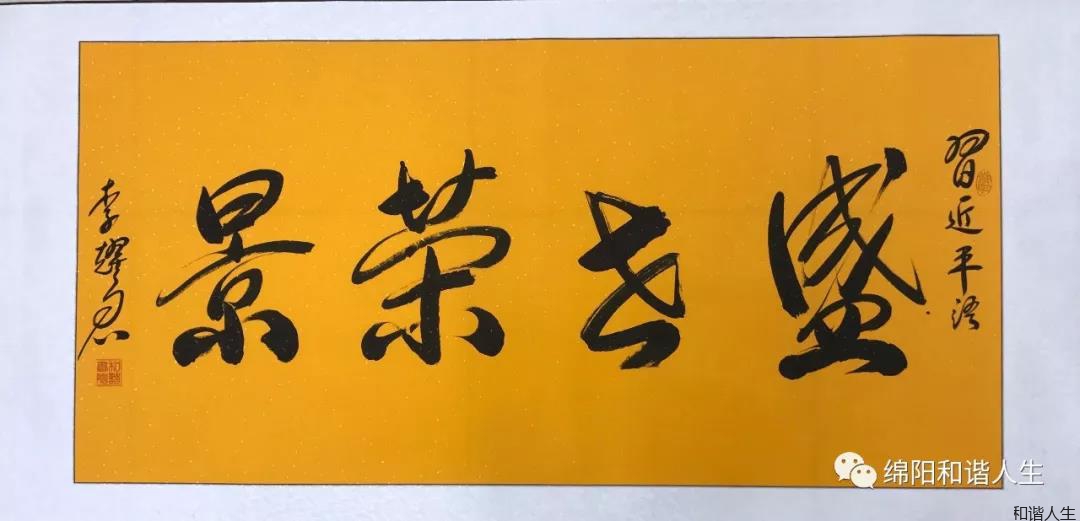 習近平语
盛世荣景
李耀
绵阳和谐人生
和谐人生